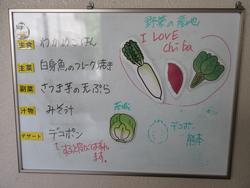 主食 わかめごはん
主菜 白身魚のフレーク焼き
副菜 さつま芋の天ぷら
汁物 みそ汁
デザート デコポン
ます。
野菜の産地
I LOVE
chiba
茨城
デコポン
熊本